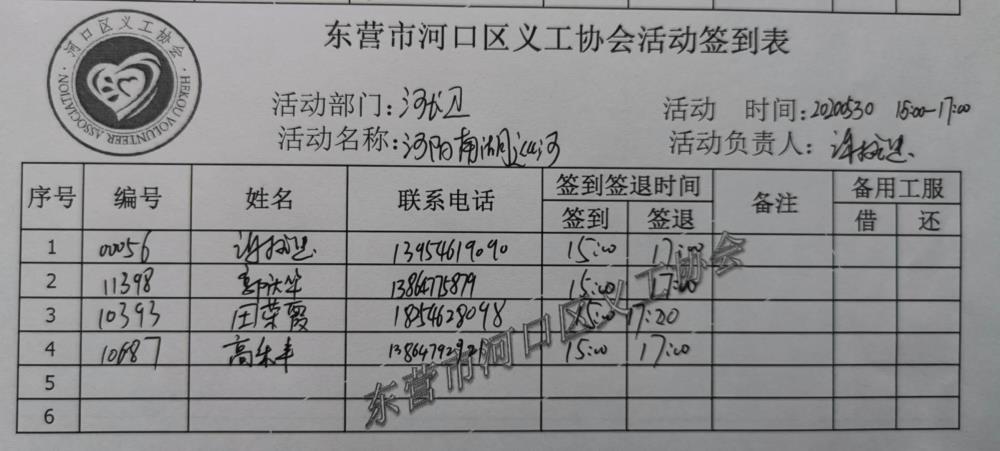 东营市河口区义工协会活动签到表
·河口区义工协会·
HEKOU VOLUNTEER ASSOCIATION
活动部门:河长卫
活动 时间:20200530 15:00-17:00
活动名称:河阳南湖巡河
活动负责人:
序号 编号 姓名 联系电话 签到签退时间 备注 备用工服
签到 签退 借 还
1 00056 13954619090 15:00 17:00
2 11398 13864775879 15:00 17:00
3 10393 田荣霞 1854628098 15:00 17:20
4 10687 高乐丰 15:00 17:00
5
6
东营市河口区义工协会